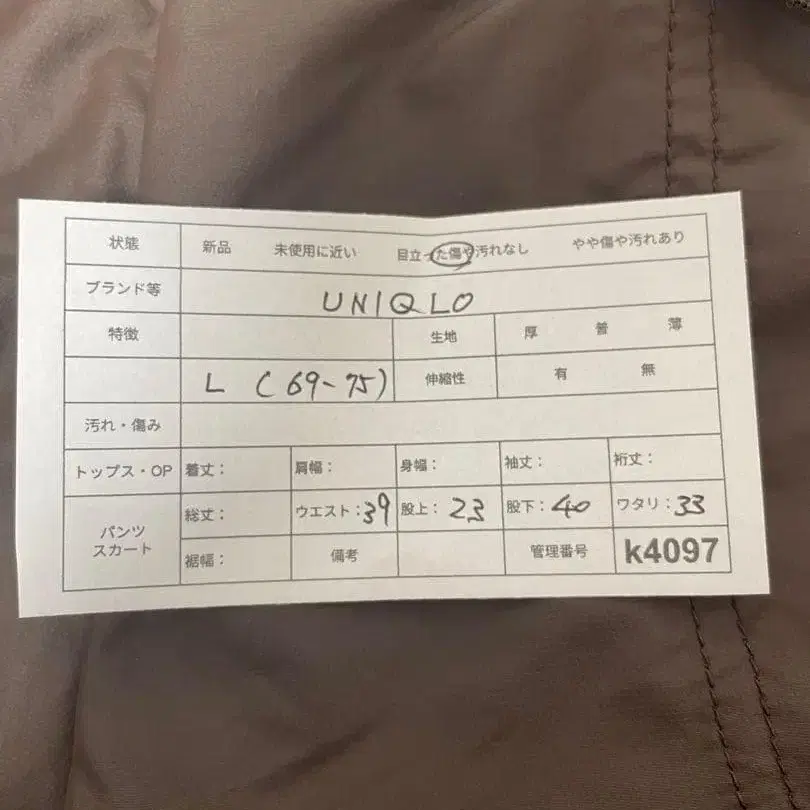 状態 新品 未使用に近い 目立った傷や汚れなし やや傷や汚れあり
ブランド等 UNIQLO
特徴 生地 厚 普 薄
L (69-75) 伸縮性 有 無
汚れ・傷み
トップス・OP 着丈: 肩幅: 身幅: 袖丈: 裄丈:
パンツ スカート 総丈: ウエスト:39 股上:23 股下:40 ワタリ:33
裾幅: 備考 管理番号 k4097